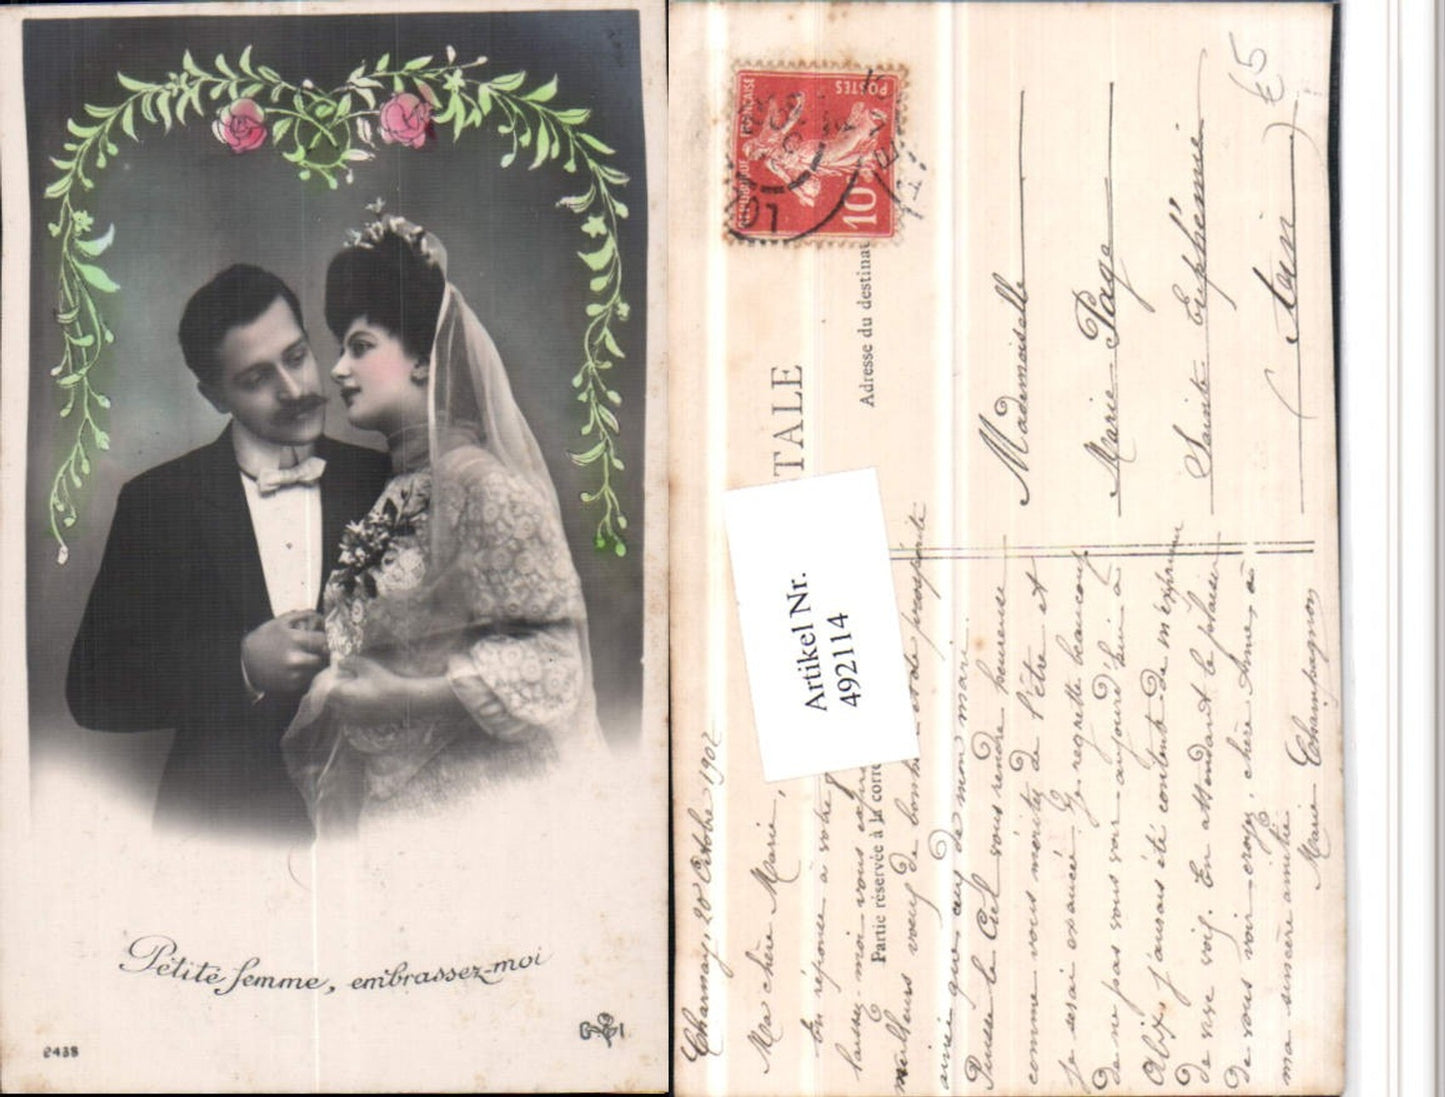 Pétite femme, embrassez-moi
2438
Charnay, 20 Octobre 1907
Ma chère Marie,
En réponse à votre
laissez-moi vous
meilleurs voeux de bonheur et de prospérité
ainsi que ceux de mon mari.
Puisse le Ciel vous rendre heureuse
comme vous méritez de l'être et
je serai exaucé. Je regrette beaucoup
de ne pas vous voir aujourd'hui à
Alix j'aurais été contente de m'exprimer
de vive voix. En attendant le plaisir
de vous voir croyez, chère Amie, à
ma sincère amitié
Marie Champagnon
TALE
Partie réservée à la corre
Adresse du destina
Artikel Nr.
492114
RÉPUBLIQUE FRANÇAISE
POSTES
10
Mademoiselle
Marie Page
Sainte Euphémie
(Ain)
€5